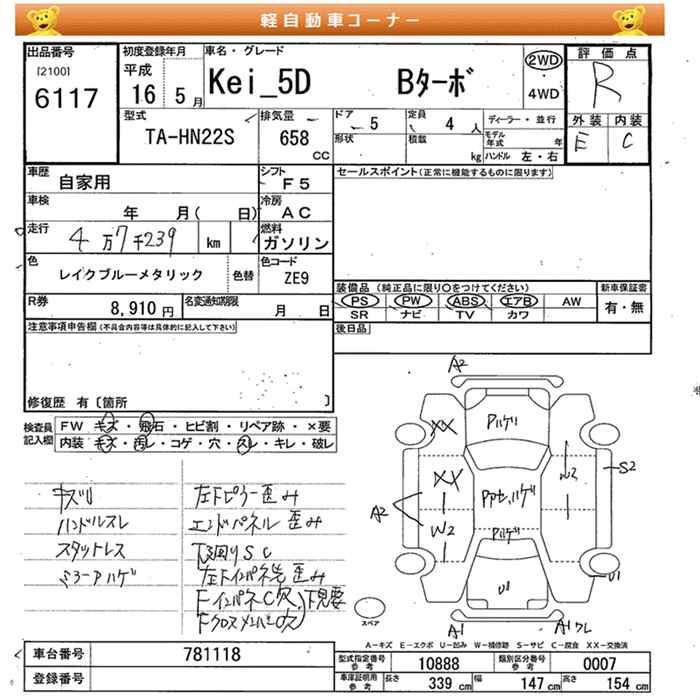 軽自動車コーナー
出品番号
[2100]
6117
初度登録年月
平成
16 5月
車名・グレード
Kei_5D Bターボ
2WD
4WD
評価点
R
外装 内装
E C
型式
TA-HN22S
排気量
658
CC
ドア 5
定員 4 人
形状
積載 kg
ディーラー・並行
モデル年式 年
ハンドル 左・右
車歴
自家用
シフト
F5
セールスポイント(正常に機能するものに限ります)
車検
年 月( 日)
冷房
AC
走行
4万7千239 km
燃料
ガソリン
色
レイクブルーメタリック
色替
色コード
ZE9
装備品 (純正品に限り○をつけてください)
PS PW ABS エアB AW
SR ナビ TV カワ
新車保証書
有・無
R券
8,910円
名変通知期限
月 日
後日品
注意事項申告欄(不具合内容等は具体的に記入して下さい)
修復歴 有〔箇所 〕
検査員記入欄
FW キズ・飛石・ヒビ割・リペア跡・×要
内装 キズ・汚レ・コゲ・穴・スレ・キレ・破レ
キズU
ハンドルスレ
スタットレス
ミラーアハゲ
左下ピラー歪み
エンドパネル歪み
下回りSC
左Fインパネ先歪み
FインパネC欠 下見要
Fクロスメンバー欠
A2
Pハゲリ
XX
XX
W2
A2
Pハゲ
W2
S2
U1
U1
A1
A1ワレ
スペア
A-キズ E-エクボ U-凹み W-補修跡 S-サビ C-腐食 XX-交換済
車台番号
781118
登録番号
型式指定番号 参考
10888
類別区分番号 参考
0007
車庫証明用 参考
長さ 339 cm
幅 147 cm
高さ 154 cm